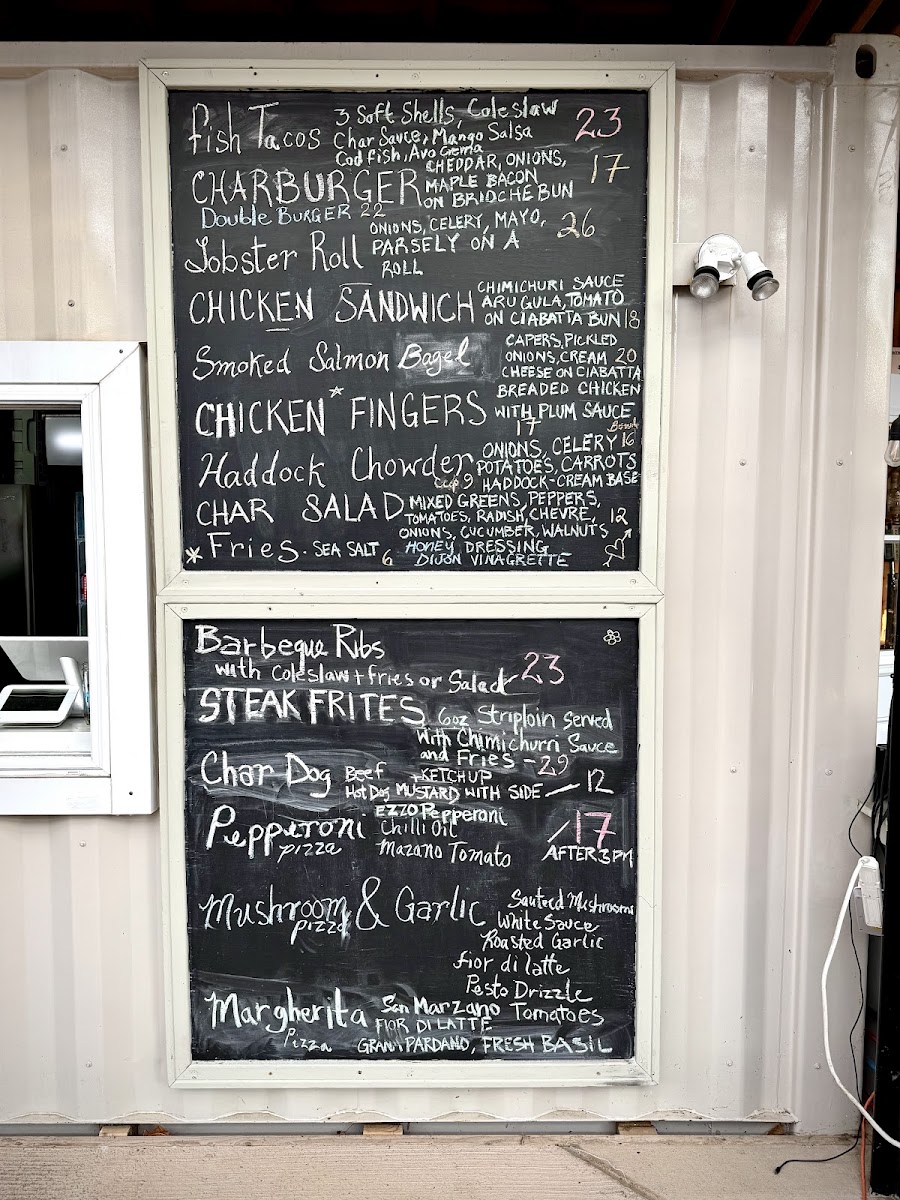 Fish Tacos 3 Soft Shells, Coleslaw 23
Char Sauce, Mango Salsa
Cod fish, Avo Crema
CHARBURGER CHEDDAR, ONIONS, 17
MAPLE BACON
ON BRIOCHE BUN
Double BURGER 22
Lobster Roll ONIONS, CELERY, MAYO, 26
PARSELY ON A
ROLL
CHICKEN SANDWICH CHIMICHURI SAUCE
ARUGULA, TOMATO
ON CIABATTA BUN 18
Smoked Salmon Bagel CAPERS, PICKLED
ONIONS, CREAM 20
CHEESE ON CIABATTA
CHICKEN* FINGERS BREADED CHICKEN
WITH PLUM SAUCE
17
Haddock Chowder ONIONS, CELERY Bowl 16
POTATOES, CARROTS
cup 9 HADDOCK-CREAM BASE
CHAR SALAD MIXED GREENS, PEPPERS,
TOMATOES, RADISH, CHEVRE, 12
ONIONS, CUCUMBER, WALNUTS
* Fries. SEA SALT 6 HONEY DRESSING
DIJON VINAGRETTE
Barbeque Ribs
with Coleslaw + fries or Salad 23
STEAK FRITES 6oz Striploin Served
With Chimichurri Sauce
and Fries - 29
Char Dog Beef + KETCHUP
Hot Dog MUSTARD WITH SIDE — 12
Pepperoni Ezzo Pepperoni
pizza Chilli Oil /17
Mazano Tomato AFTER 3 PM
Mushroom & Garlic Sauteed Mushrooms
pizza White Sauce
Roasted Garlic
fior di latte
Pesto Drizzle
Margherita San Marzano Tomatoes
Pizza FIOR DI LATTE
GRANA PARDANO, FRESH BASIL